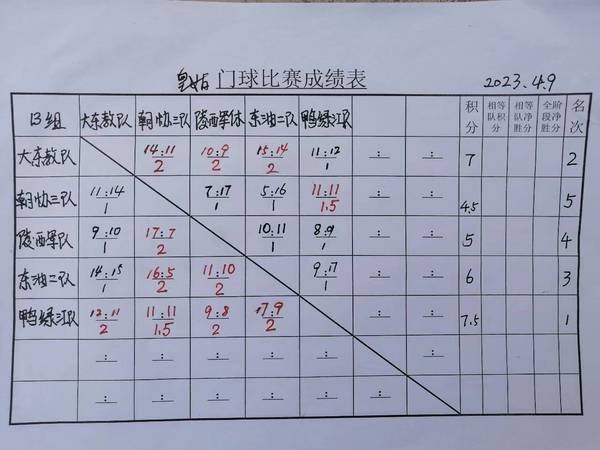 皇姑 门球比赛成绩表 2023.4.9
B组 大东教队 朝协三队 陵西军休 东油二队 鸭绿江队 积分 相等队积分 相等队净胜分 全阶段净胜分 名次
大东教队 14:11 2 10:9 2 15:14 2 11:12 1 : : 7 2
朝协三队 11:14 1 7:17 1 5:16 1 11:11 1.5 : : 4.5 5
陵西军队 9:10 1 17:7 2 10:11 1 8:9 1 : : 5 4
东油二队 14:15 1 16:5 2 11:10 2 9:17 1 : : 6 3
鸭绿江队 12:11 2 11:11 1.5 9:8 2 17:9 2 : : 7.5 1
: : : : : :
: : : : : :